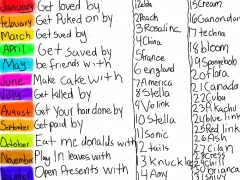 January Get loved by
February Get Puked on by
March Get Sued by
April Get Saved by
May be friends with
June Make Cake with
July Get killed by
August Get Your hair done by
September Get paid by
October Eat mc donalds with
November Play In leaves with
Open Presents with
1 Zelda
2 Peach
3 Rosalina
4 China
5 france
6 england
7 America
8 Stella
10 Stella
11 Sonic
12 tails
13 knuckles
14 Amy
15 Cream
16 Ganondorf
17 techna
18 bloom
19 Spongebob
20 flora
21 Canada
22 Cuba
blue link
25 Red link
26 Ash
27 Cilan